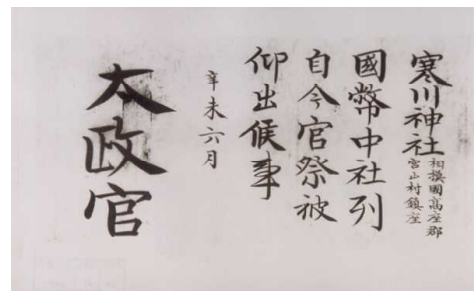 寒川神社
相摸國高座郡
宮山村鎮座
國幣中社列
自今官祭被
仰出候事
辛未六月
太政官